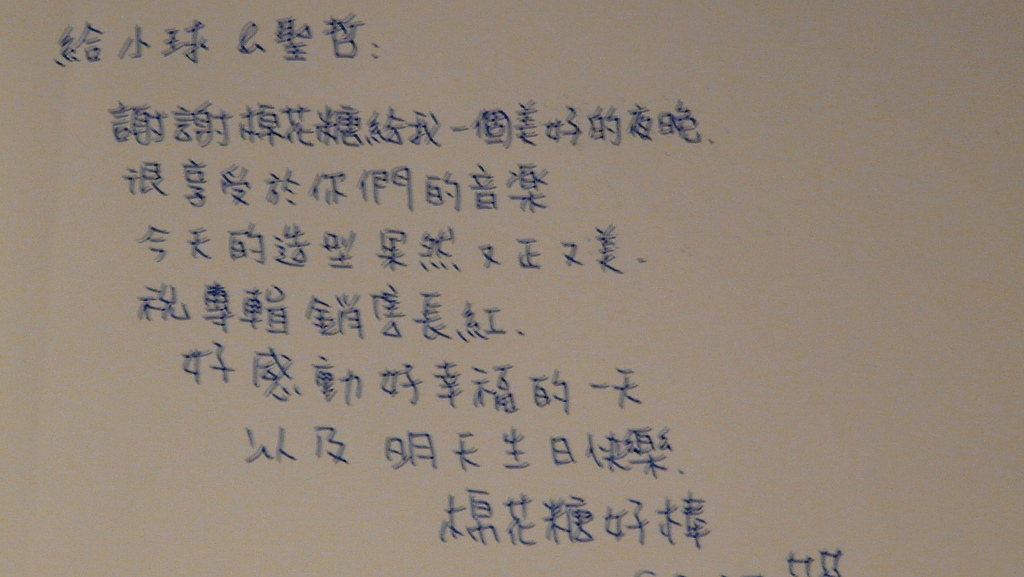 給小球 & 聖哲:
謝謝棉花糖給我一個美好的夜晚.
很享受於你們的音樂
今天的造型果然又正又美.
祝專輯銷售長紅.
好感動好幸福的一天
以及 明天生日快樂.
棉花糖好棒